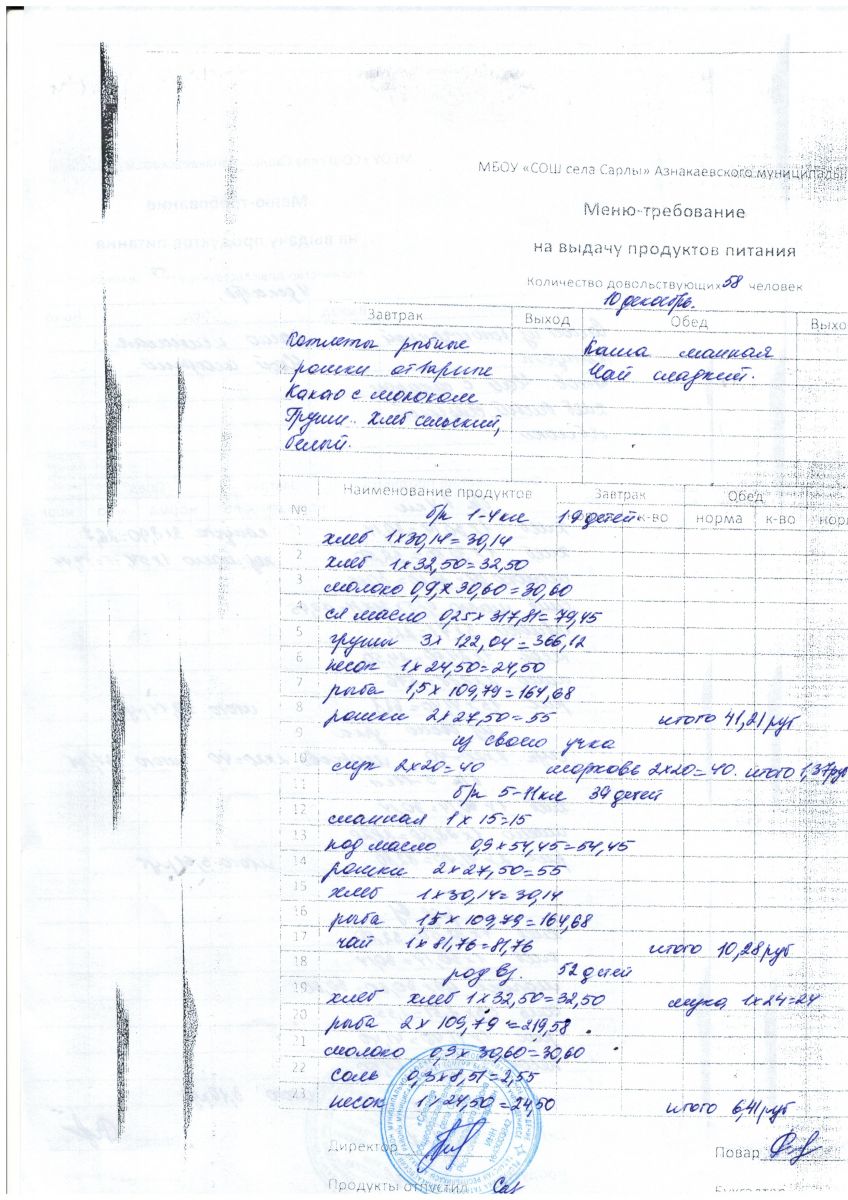 МБОУ «СОШ села Сарлы» Азнакаевского муниципальн
Меню-требование
на выдачу продуктов питания
Количество довольствующих 58 человек
10 декабрь
Завтрак Выход Обед Выхо
Котлеты рыбные Каша манная
рошки отварные Чай сладкий.
Какао с молоком
Груши. Хлеб сельский,
белый.
№ Наименование продуктов Завтрак Обед
бр 1-4 кл 19 детей к-во норма к-во норм
1 хлеб 1х30,14=30,14
2 хлеб 1х32,50=32,50
3 молоко 0,9х30,60=30,60
4 сл масло 0,25х317,81=79,45
5 груши 3х122,04=366,12
6 песок 1х24,50=24,50
7 рыба 1,5х109,79=164,68
8 рошки 2х27,50=55 итого 41,21 руб
9 из своего учка
10 лук 2х20=40 морковь 2х20=40. итого 1,37 руб
11 бр 5-11 кл 39 детей
12 манная 1х15=15
13 под масло 0,9х54,45=54,45
14 рошки 2х27,50=55
15 хлеб 1х30,14=30,14
16 рыба 1,5х109,79=164,68
17 чай 1х81,76=81,76 итого 10,28 руб
18 род вз. 52 детей
19 хлеб хлеб 1х32,50=32,50 мука 1х24=24
20 рыба 2х109,79=219,58
21 молоко 0,9х30,60=30,60
22 соль 0,3х8,51=2,55
23 песок 1х24,50=24,50 итого 6,41 руб
Директор Повар
Продукты отпустил Бухгалтер